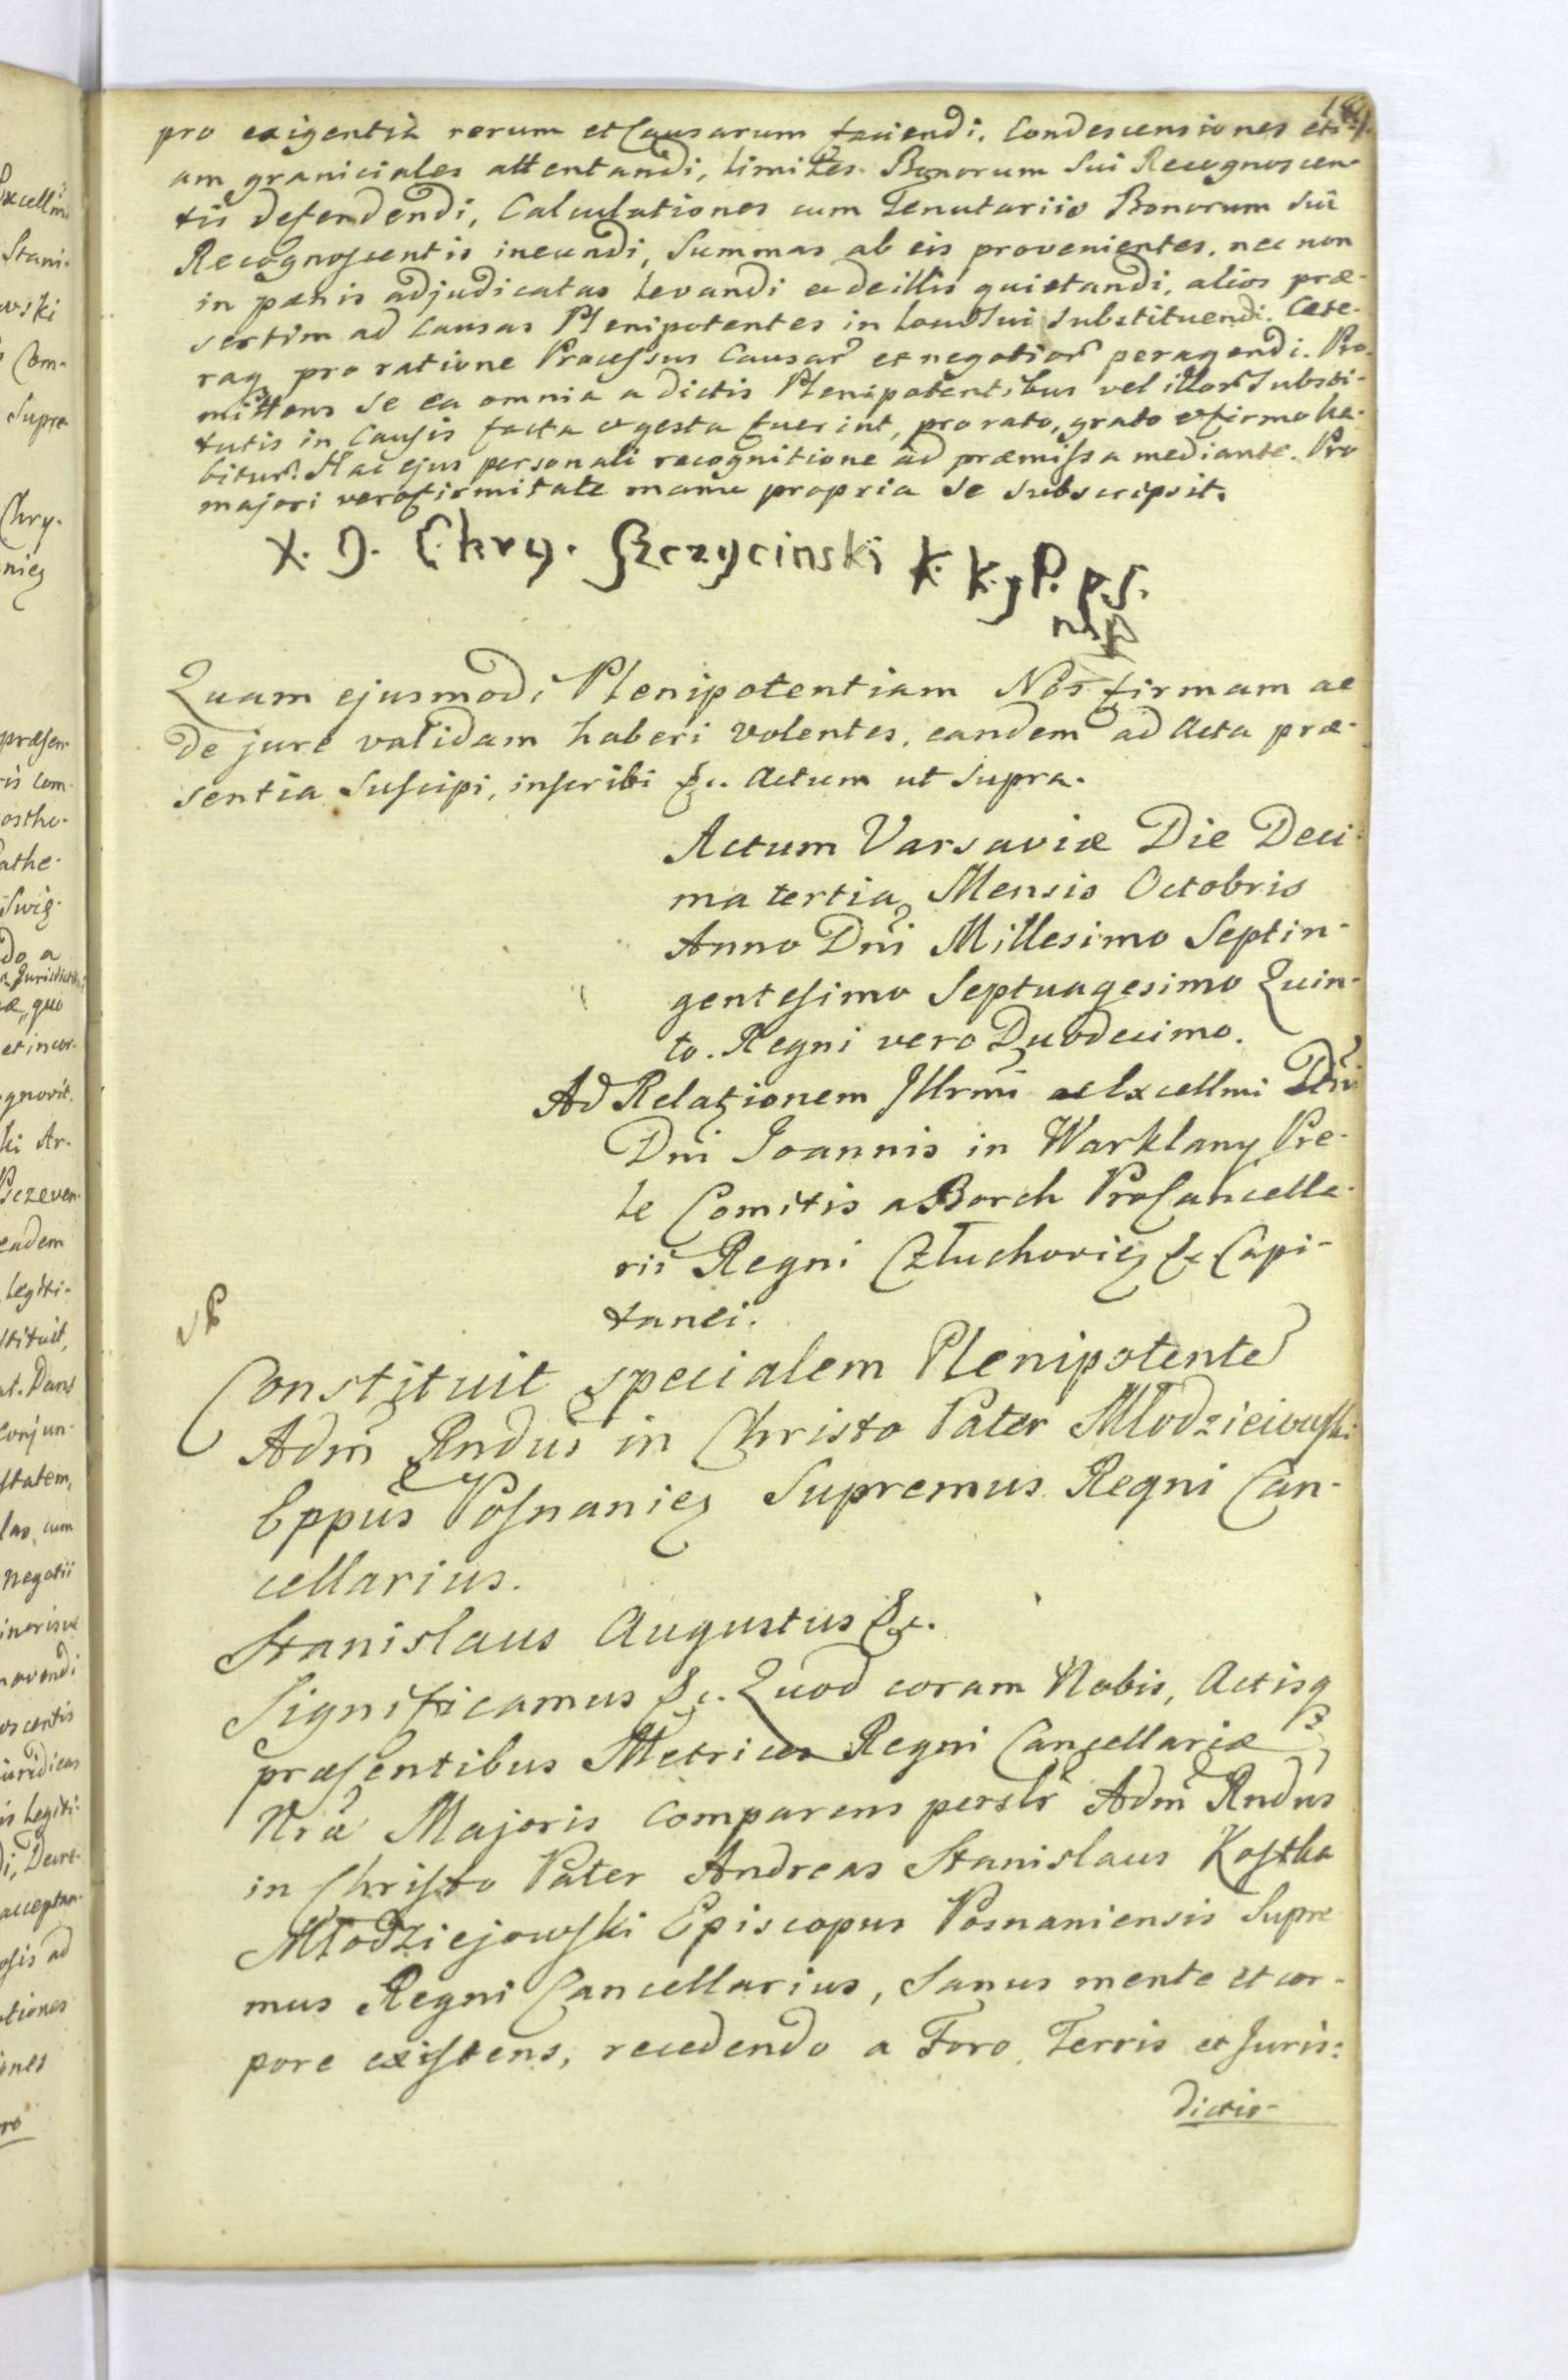 pro exigentia rerum et Causarum faciendi. Condescensiones eti-
am graniciales attentandi, limites Bonorum sui Recognoscen-
tis defendendi, Calculationes cum Tenutariis Bonorum sui
Recognoscentis ineundi, Summas ab eis provenientes, nec non
in pænis adjudicatas levandi et de illis quietandi, alios præ-
sertim ad Causas Plenipotentes in locu Sui Substituendi. Cete-
raq pro ratione Processus Causar et negotior peragendi. Pro-
mittens se ea omnia a dictis Plenipotentibus vel illor Substi-
tutis in Causis facta et gesta fuerint, pro rato, grato et firmo ha-
bitur. Hac ejus personali recognitione ad præmissa mediante. Pro
majori vero firmitate manu propria se subscripsit.
X. J. Chry. Szczycinski K. K. y P. p.s.
mp
Quam ejusmodi Plenipotentiam Nos firmam ac
de jure validam haberi volentes, eandem ad Acta præ-
sentia suscipi, inscribi &c. Actum ut supra.
Actum Varsaviæ Die Deci-
ma tertia Mensis Octobris
Anno Dni Millesimo Septin-
gentesimo Septuagesimo Quin-
to. Regni vero Duodecimo.
Ad Relationem Illrmi ac Excellmi Dni
Dni Joannis in Warklany Pre-
le Comitis a Borch ProCancella-
rii Regni Człuchovien &c Capi-
tanei.
Constituit specialem Plenipotente
Adm Rndus in Christo Pater Młodzieiowski
Eppus Posnanien Supremus Regni Can-
cellarius.
Stanislaus Augustus &c.
Significamus &c. Quod coram Nobis, Actisq
præsentibus Metrices Regni Cancellariæ
Nræ Majoris comparens perslr Adm Rndus
in Christo Pater Andreas Stanislaus Kostka
Młodziejowski Episcopus Posnaniensis Supre
mus Regni Cancellarius, Sanus mente et cor-
pore existens, recedendo a Foro, Terris et Juris:
dictio-